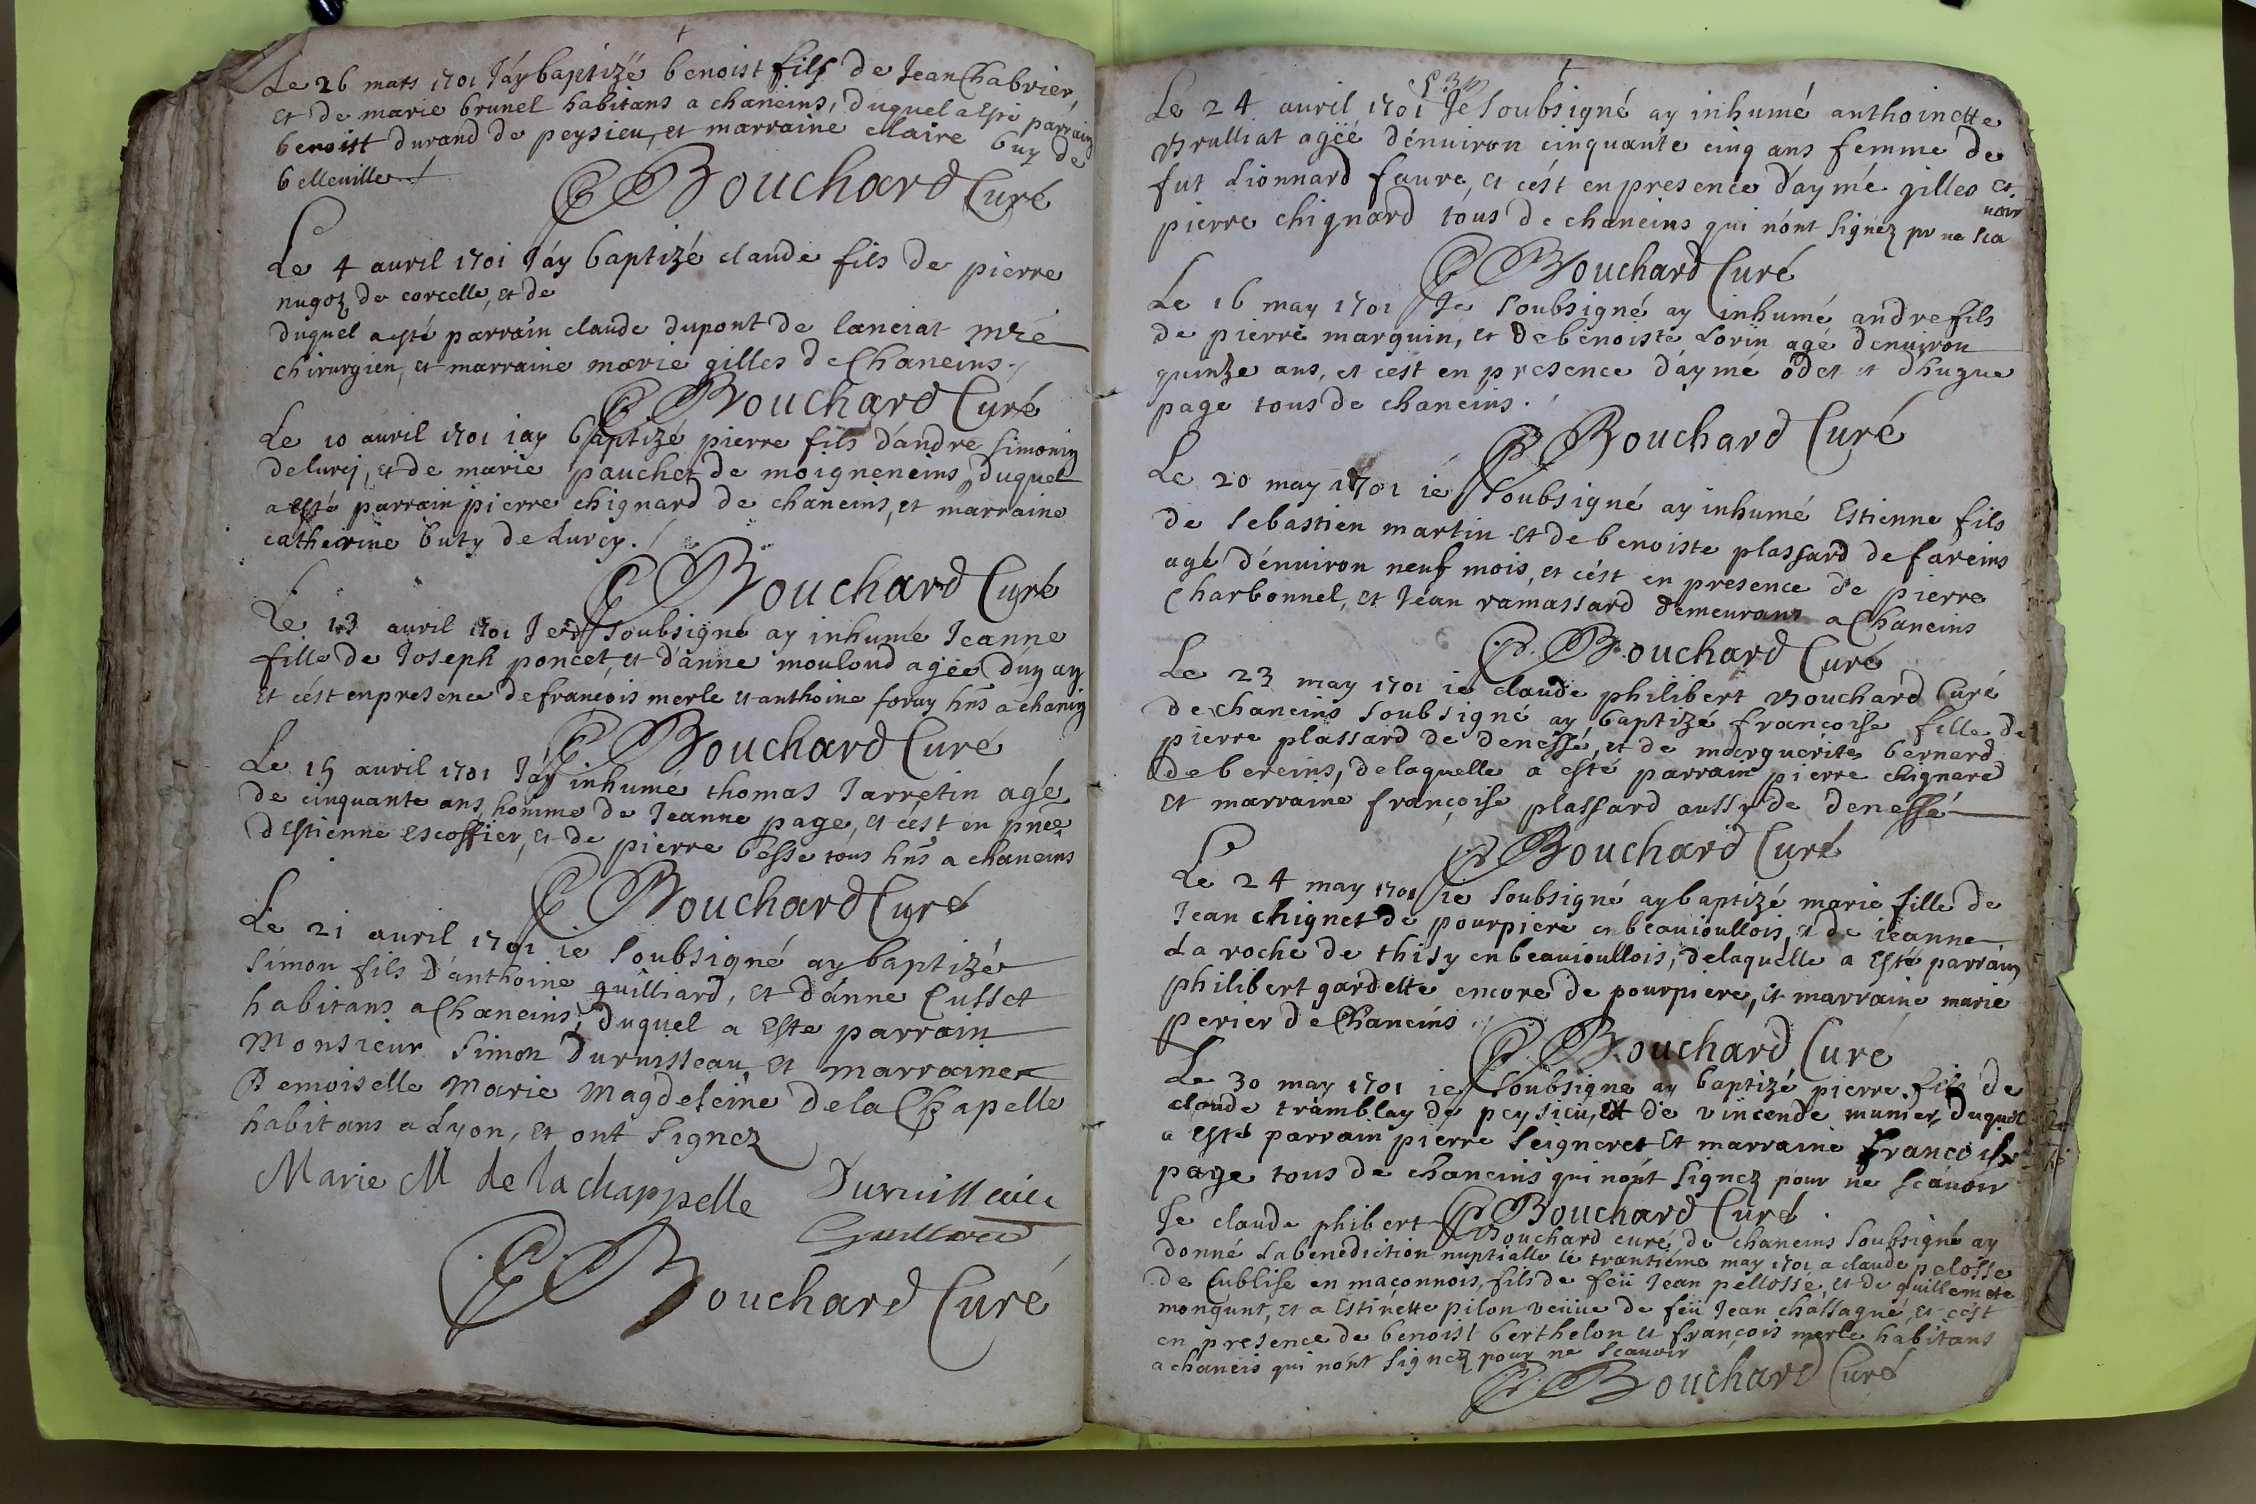 Le 26 mars 1701 J'áy baptizé benoist fils de Jean Chabrier,
et de marie brunel habitans a chaneins, duquel a esté parrain
benoist durand de peysieu, et marraine claire buy de
belleuille
CP Bouchard Curé
Le 4 auril 1701 J'áy baptizé claude fils de pierre
nugoz de corcelle, et de
duquel a esté parrain claude dupont de lanciat mre
chirurgien, et marraine marie gilles de Chaneins
CP Bouchard Curé
Le 10 auril 1701 i'ay baptizé pierre fils d'andre simonin
de lurcj, et de marie pauchet de moigneneins, duquel
a esté parrain pierre chignard de chaneins, et marraine
catherine buty de Lurcy
CP Bouchard Curé
Le 13 auril 1701 Je soubsigné ay inhumé Jeanne
fille de Joseph poncet, et d'anne mouloud agée d'un an
et c'ést en presence de francois merle et anthoine foray hns a chanins
CP Bouchard Curé
Le 15 auril 1701 J'áy inhumé thomas Jarretin agé
de cinquante ans, homme de Jeanne page, et c'ést en pnce
d'Estienne escoffier, et de pierre besse tous hns a chaneins
CP Bouchard Curé
Le 21 auril 1701 ie soubsigné ay baptizé
simon fils d'anthoine guilliard, et d'ánne Cusset
habitans a Chaneins, duquel a este parrain
Monsieur Simon Duruisseau et marraine
Demoiselle Marie Magdeleine de la Chapelle
habitans a Lyon, et ont signez
Marie M de la chappelle Duruisseau
Guilliard
CP Bouchard Curé
Le 24 auril 1701 Je soubsigné ay inhumé anthoinette
Brulliat agée d'énuiron cinquante cinq ans femme de
fut Lionnard faure, et c'ést en presence d'áymé gilles et
pierre chignard tous de chaneins qui n'ónt signéz pr ne sca
uoir
CP Bouchard Curé
Le 16 may 1701 Je soubsigné ay inhumé andre fils
de pierre marquin, et de benoiste Lorin agé d'enuiron
quinze ans, et c'est en presence d'áymé odet et d'hugue
page tous de chaneins
CP Bouchard Curé
Le 20 may 1701 ie soubsigné ay inhumé Estienne fils
de Sebastien martin et de benoiste plassard de fareins
agé d'énuiron neuf mois, et c'ést en presence de pierre
Charbonnel, et Jean ramassard demeurans a Chaneins
CP Bouchard Curé
Le 23 may 1701 ie claude philibert Bouchard Curé
de chaneins soubsigné ay baptizé francoise fille de
pierre plassard de denessé, et de marguerite bernard
de bereins, de laquelle a esté parrain pierre chignard
et marraine françoise plassard aussy de denessé
CP Bouchard Curé
Le 24 may 1701 ie soubsigné ay baptizé marie fille de
Jean chignet de pourpiere en beauioullois, et de ieanne
La roche de thisy en beauioullois, de laquelle a esté parrain
philibert gardette encore de pourpiere, et marraine marie
perier de Chaneins
CP Bouchard Curé
Le 30 may 1701 ie soubsigné ay baptizé pierre fils de
claude tramblay de peysieu, et de vincende munier, duquel
a esté parrain pierre seigneret et marraine francoise
page tous de chaneins qui n'ont signez pour ne scáuoir
CP Bouchard Curé
Je claude phibert Bouchard curé de chaneins soubsigné ay
donné la benediction nuptialle le trantiéme may 1701 a claude pelosse
de Cublise en maçonnois, fils de feü Jean pellosse, et de guillemete
mongunt, et a Estinette pilon veüue de feü Jean chassagne, et c'ést
en presence de benoist berthelon et françois merle habitans
a chaneis qui n'ónt signez pour ne scauoir
CP Bouchard Curé